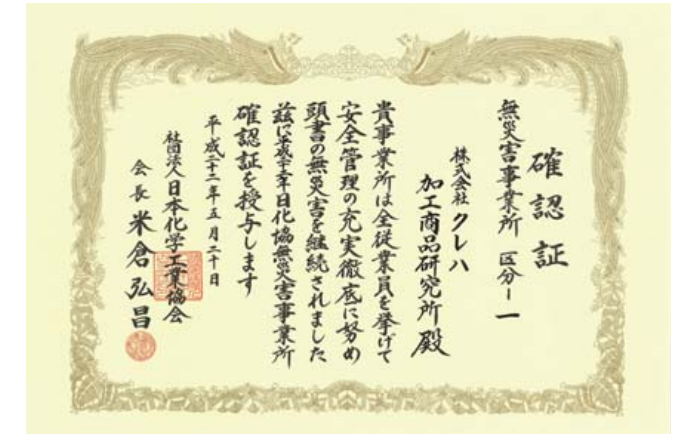 確認証
無災害事業所 区分Ⅰ－一
株式会社 クレハ
加工商品研究所 殿
貴事業所は全従業員を挙げて
安全管理の充実徹底に努め
頭書の無災害を継続されました
茲に平成二十一年日化協無災害事業所
確認証を授与します
平成二十二年五月二十日
社団法人 日本化学工業協会
会長 米倉弘昌